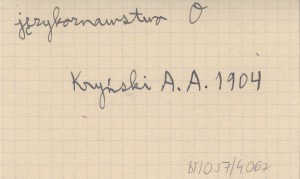 językoznawstwo O
Kryński A. A. 1904
BT/057/4062